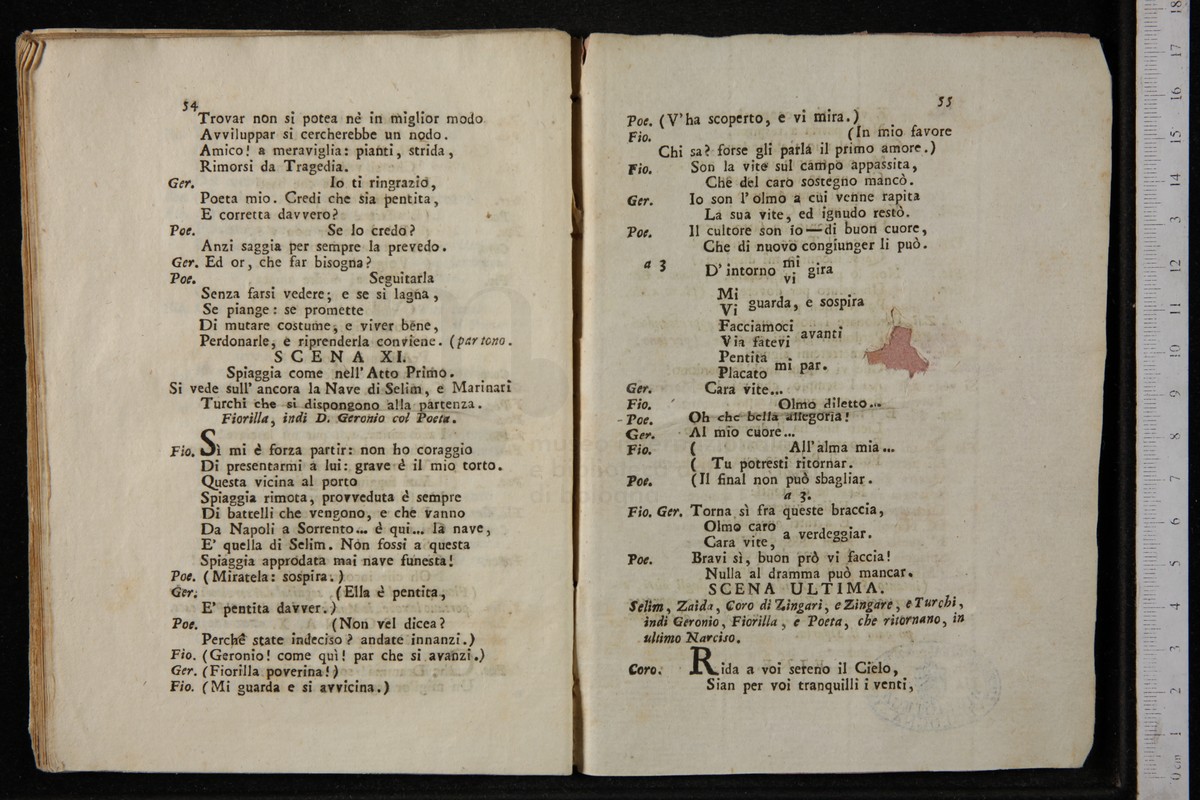 54
Trovar non si potea nè in miglior modo
Avviluppar si cercherebbe un nodo.
Amico! a meraviglia: pianti, strida,
Rimorsi da Tragedia.
Ger. Io ti ringrazio,
Poeta mio. Credi che sia pentita,
E corretta davvero?
Poe. Se lo credo?
Anzi saggia per sempre la prevedo.
Ger. Ed or, che far bisogna?
Poe. Seguitarla
Senza farsi vedere; e se si lagna,
Se piange: se promette
Di mutare costume, e viver bene,
Perdonarle, e riprenderla conviene. (partono.
SCENA XI.
Spiaggia come nell' Atto Primo.
Si vede sull' ancora la Nave di Selim, e Marinari
Turchi che si dispongono alla partenza.
Fiorilla, indi D. Geronio col Poeta.
Fio. Sì mi è forza partir: non ho coraggio
Di presentarmi a lui: grave è il mio torto.
Questa vicina al porto
Spiaggia rimota, provveduta è sempre
Di battelli che vengono, e che vanno
Da Napoli a Sorrento... è qui... la nave,
E' quella di Selim. Non fossi a questa
Spiaggia approdata mai nave funesta!
Poe. (Miratela: sospira.)
Ger. (Ella è pentita,
E' pentita davver.)
Poe. (Non vel dicea?
Perchè state indeciso? andate innanzi.)
Fio. (Geronio! come quì! par che si avanzi.)
Ger. (Fiorilla poverina!)
Fio. (Mi guarda e si avvicina.)
55
Poe. (V'ha scoperto, e vi mira.)
Fio. (In mio favore
Chi sa? forse gli parla il primo amore.)
Fio. Son la vite sul campo appassita,
Che del caro sostegno mancò.
Ger. Io son l'olmo a cui venne rapita
La sua vite, ed ignudo restò.
Poe. Il cultore son io — di buon cuore,
Che di nuovo congiunger li può.
a 3 D' intorno mi gira
vi
Mi guarda, e sospira
Vi
Facciamoci avanti
Via fatevi
Pentita mi par.
Placato
Ger. Cara vite...
Fio. Olmo diletto...
Poe. Oh che bella allegoria!
Ger. Al mio cuore...
Fio. ( All'alma mia...
( Tu potresti ritornar.
Poe. (Il final non può sbagliar.
a 3.
Fio. Ger. Torna sì fra queste braccia,
Olmo caro a verdeggiar.
Cara vite,
Poe. Bravi sì, buon prò vi faccia!
Nulla al dramma può mancar.
SCENA ULTIMA.
Selim, Zaida, Coro di Zingari, e Zingare, e Turchi,
indi Geronio, Fiorilla, e Poeta, che ritornano, in
ultimo Narciso.
Coro. Rida a voi sereno il Cielo,
Sian per voi tranquilli i venti,